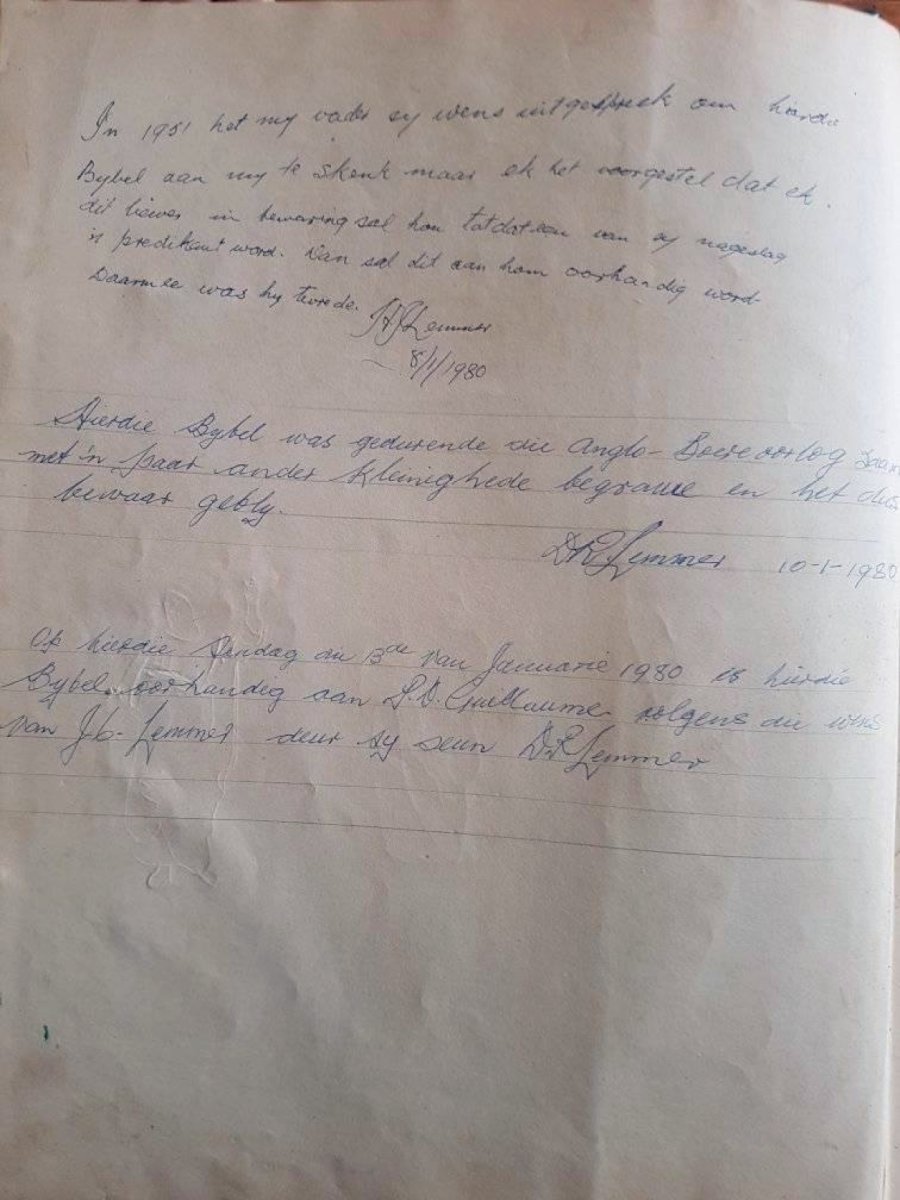 In 1951 het my vader sy wens uitgespreek om hierdie
Bybel aan my te skenk maar ek het voorgestel dat ek
dit liewer in bewaring sal hou totdat een van sy nageslag
'n predikant word. Dan sal dit aan hom oorhandig word
Daarmee was hy tevrede.
Lemmer
8/1/1980
Hierdie Bybel was gedurende die Anglo-Boereoorlog saam
met 'n paar ander kleinighede begrawe en het dus
bewaar gebly.
Lemmer 10-1-1980
Op hierdie Sondag die 13de van Januarie 1980 is hierdie
Bybel oorhandig aan Guillaume volgens die wens
van J.G. Lemmer deur sy seun Lemmer